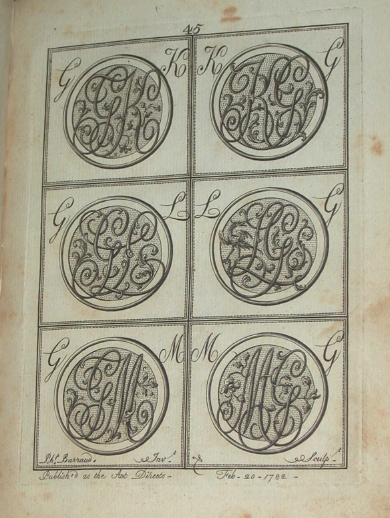 45
G K K G
G L L G
G M M G
Ph. Barraud. Inv.t Sculp.t
Publish'd as the Act Directs - Feb - 20 - 1782 -